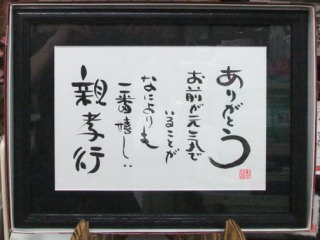 ありがとう
お前が元気で
いることが
なによりも
一番嬉しい
親孝行